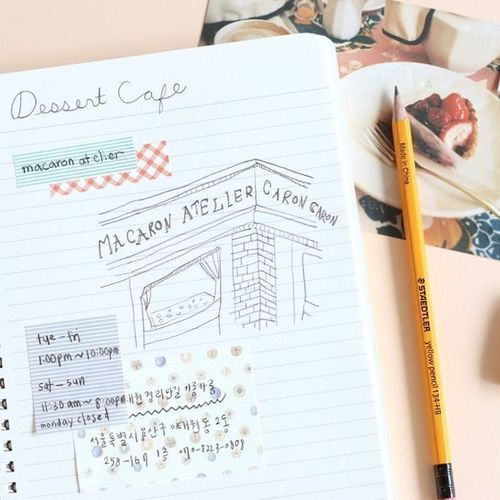 Dessert Cafe
macaron atelier
MACARON ATELIER CARON CARON
tye - fri
1:00pm ~ 10:00pm
sat - sun
11:30 am ~ 8:00pm
monday closed
서울특별시 용산구 이태원동 2동
258-167 1층 070-8223-0808
Made in China
STAEDTLER yellow pencil 134-HB